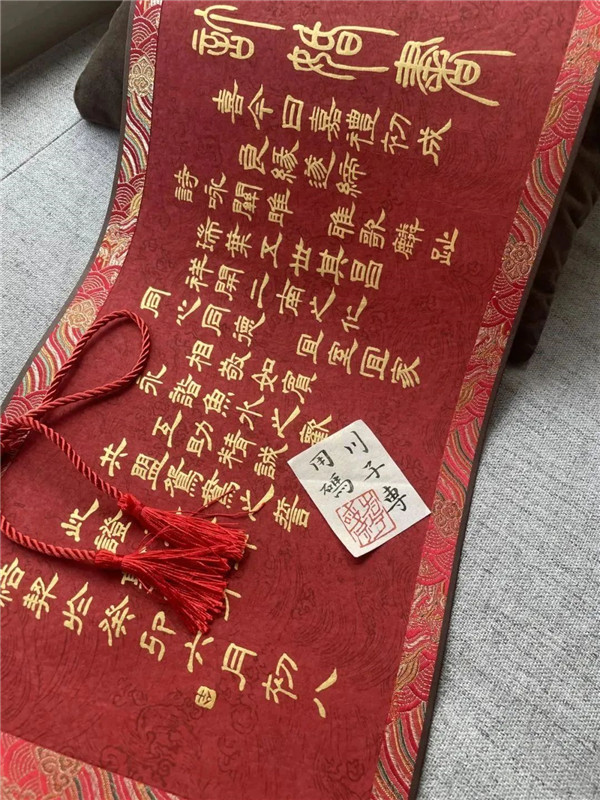 喜今日嘉禮初成
良緣遂締
詩咏關雎 雅歌麟趾
瑞葉五世其昌
祥開二南之化
同心同德 宜室宜家
相敬如賓
永諧魚水之歡
互助精誠
共盟鴛鴦之誓
此證
契於癸卯六月初八
川子專
用碼